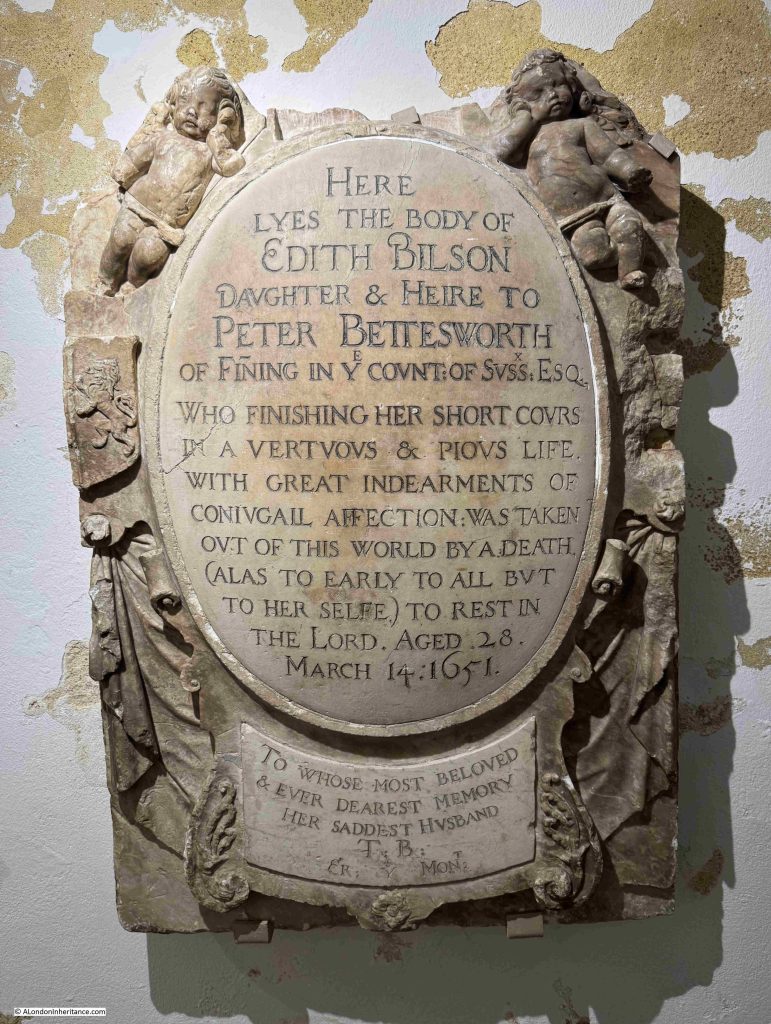 HERE
LYES THE BODY OF
EDITH BILSON
DAVGHTER & HEIRE TO
PETER BETTESWORTH
OF FIÑING IN Yᴱ COVNT: OF SVSˣS: ESQ
WHO FINISHING HER SHORT COVRS
IN A VERTVOVS & PIOVS LIFE.
WITH GREAT INDEARMENTS OF
CONIVGAIL AFFECTION: WAS TAKEN
OVT OF THIS WORLD BY A DEATH,
(ALAS TO EARLY TO ALL BVT
TO HER SELFE,) TO REST IN
THE LORD. AGED .28.
MARCH 14: 1651.
TO WHOSE MOST BELOVED
& EVER DEAREST MEMORY
HER SADDEST HVSBAND
T: B:
ER: Yᵀ MONᵀ:
© ALondonInheritance.com